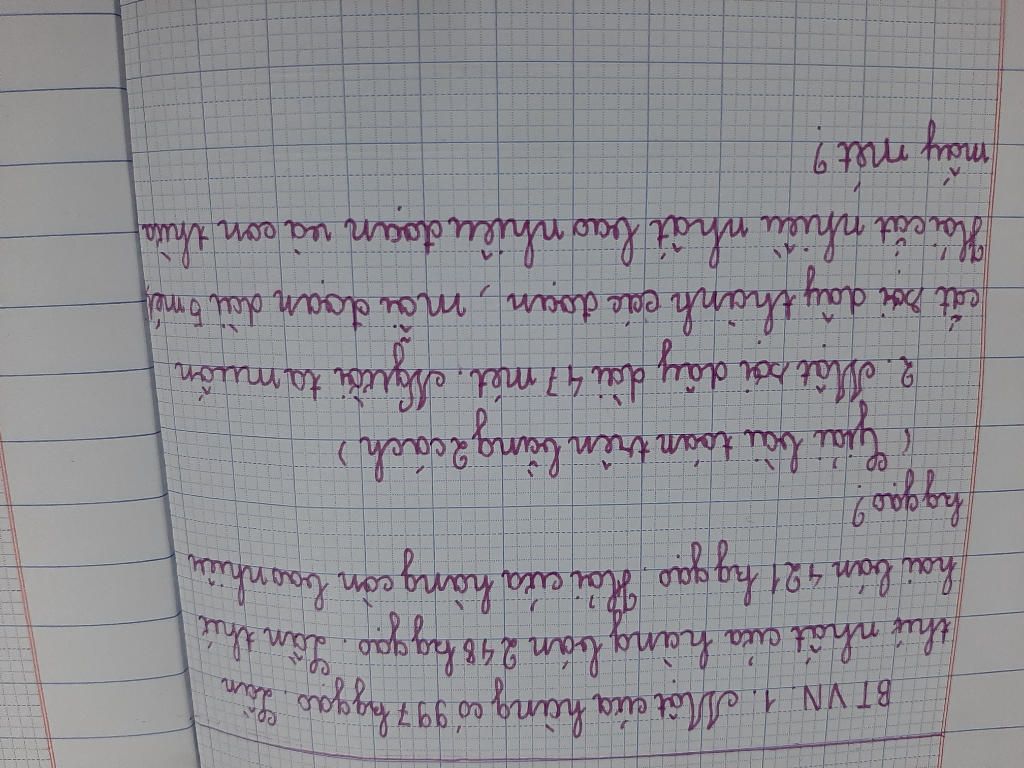 BTVN. 1. Một cửa hàng có 997 kg gạo. Lần
thứ nhất cửa hàng bán 248 kg gạo. Lần thứ
hai bán 421 kg gạo. Hỏi cửa hàng còn bao nhiêu
kg gạo?
( Giải bài toán trên bằng 2 cách )
2. Một sợi dây dài 47 mét. Người ta muốn
cắt sợi dây thành các đoạn, mỗi đoạn dài 5 mét,
Hỏi cắt nhiều nhất bao nhiêu đoạn và còn thừa
mấy mét?